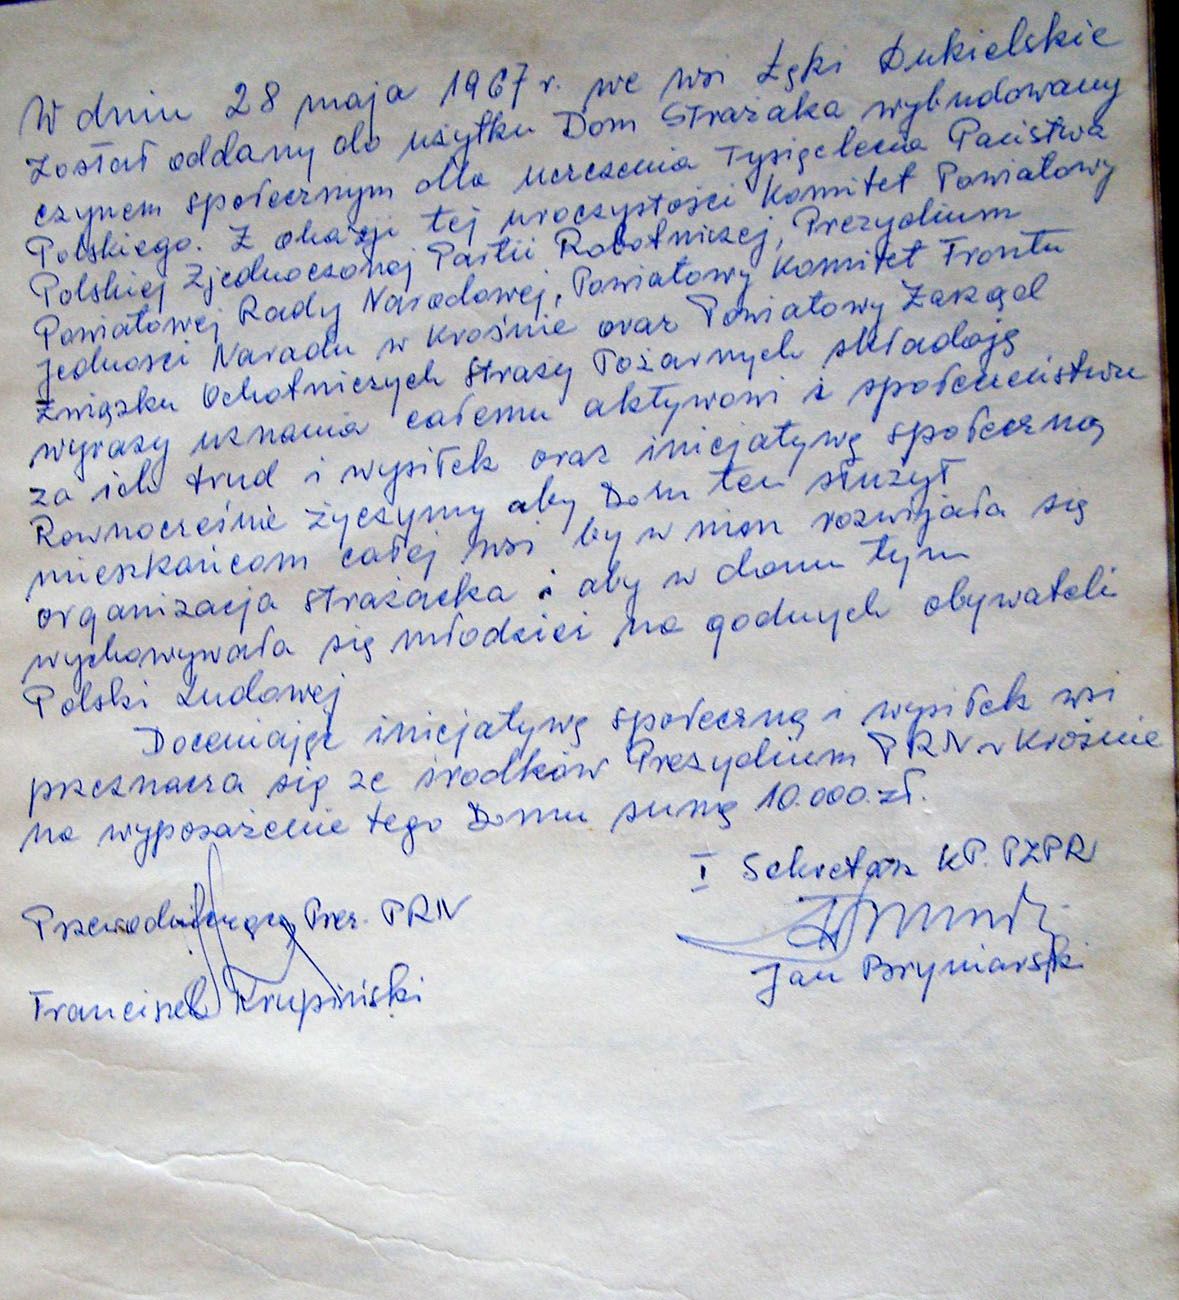 W dniu 28 maja 1967 r. we wsi Łęki Dukielskie
został oddany do użytku Dom Strażaka wybudowany
czynem społecznym dla uczczenia Tysiąclecia Państwa
Polskiego. Z okazji tej uroczystości Komitet Powiatowy
Polskiej Zjednoczonej Partii Robotniczej, Prezydium
Powiatowej Rady Narodowej, Powiatowy Komitet Frontu
Jedności Narodu w Krośnie oraz Powiatowy Zarząd
Związku Ochotniczych Straży Pożarnych składają
wyrazy uznania całemu aktywowi i społeczeństwu
za ich trud i wysiłek oraz inicjatywę społeczną
Równocześnie życzymy aby Dom ten służył
mieszkańcom całej wsi by w nim rozwijała się
organizacja strażacka i aby w domu tym
wychowywała się młodzież na godnych obywateli
Polski Ludowej
Doceniając inicjatywę społeczną i wysiłek wsi
przeznacza się ze środków Prezydium PRN w Krośnie
na wyposażenie tego Domu sumę 10.000.zł.
I Sekretarz KP. PZPR
Przewodniczący Prez. PRN
Jan Bryniarski
Franciszek Krupiński